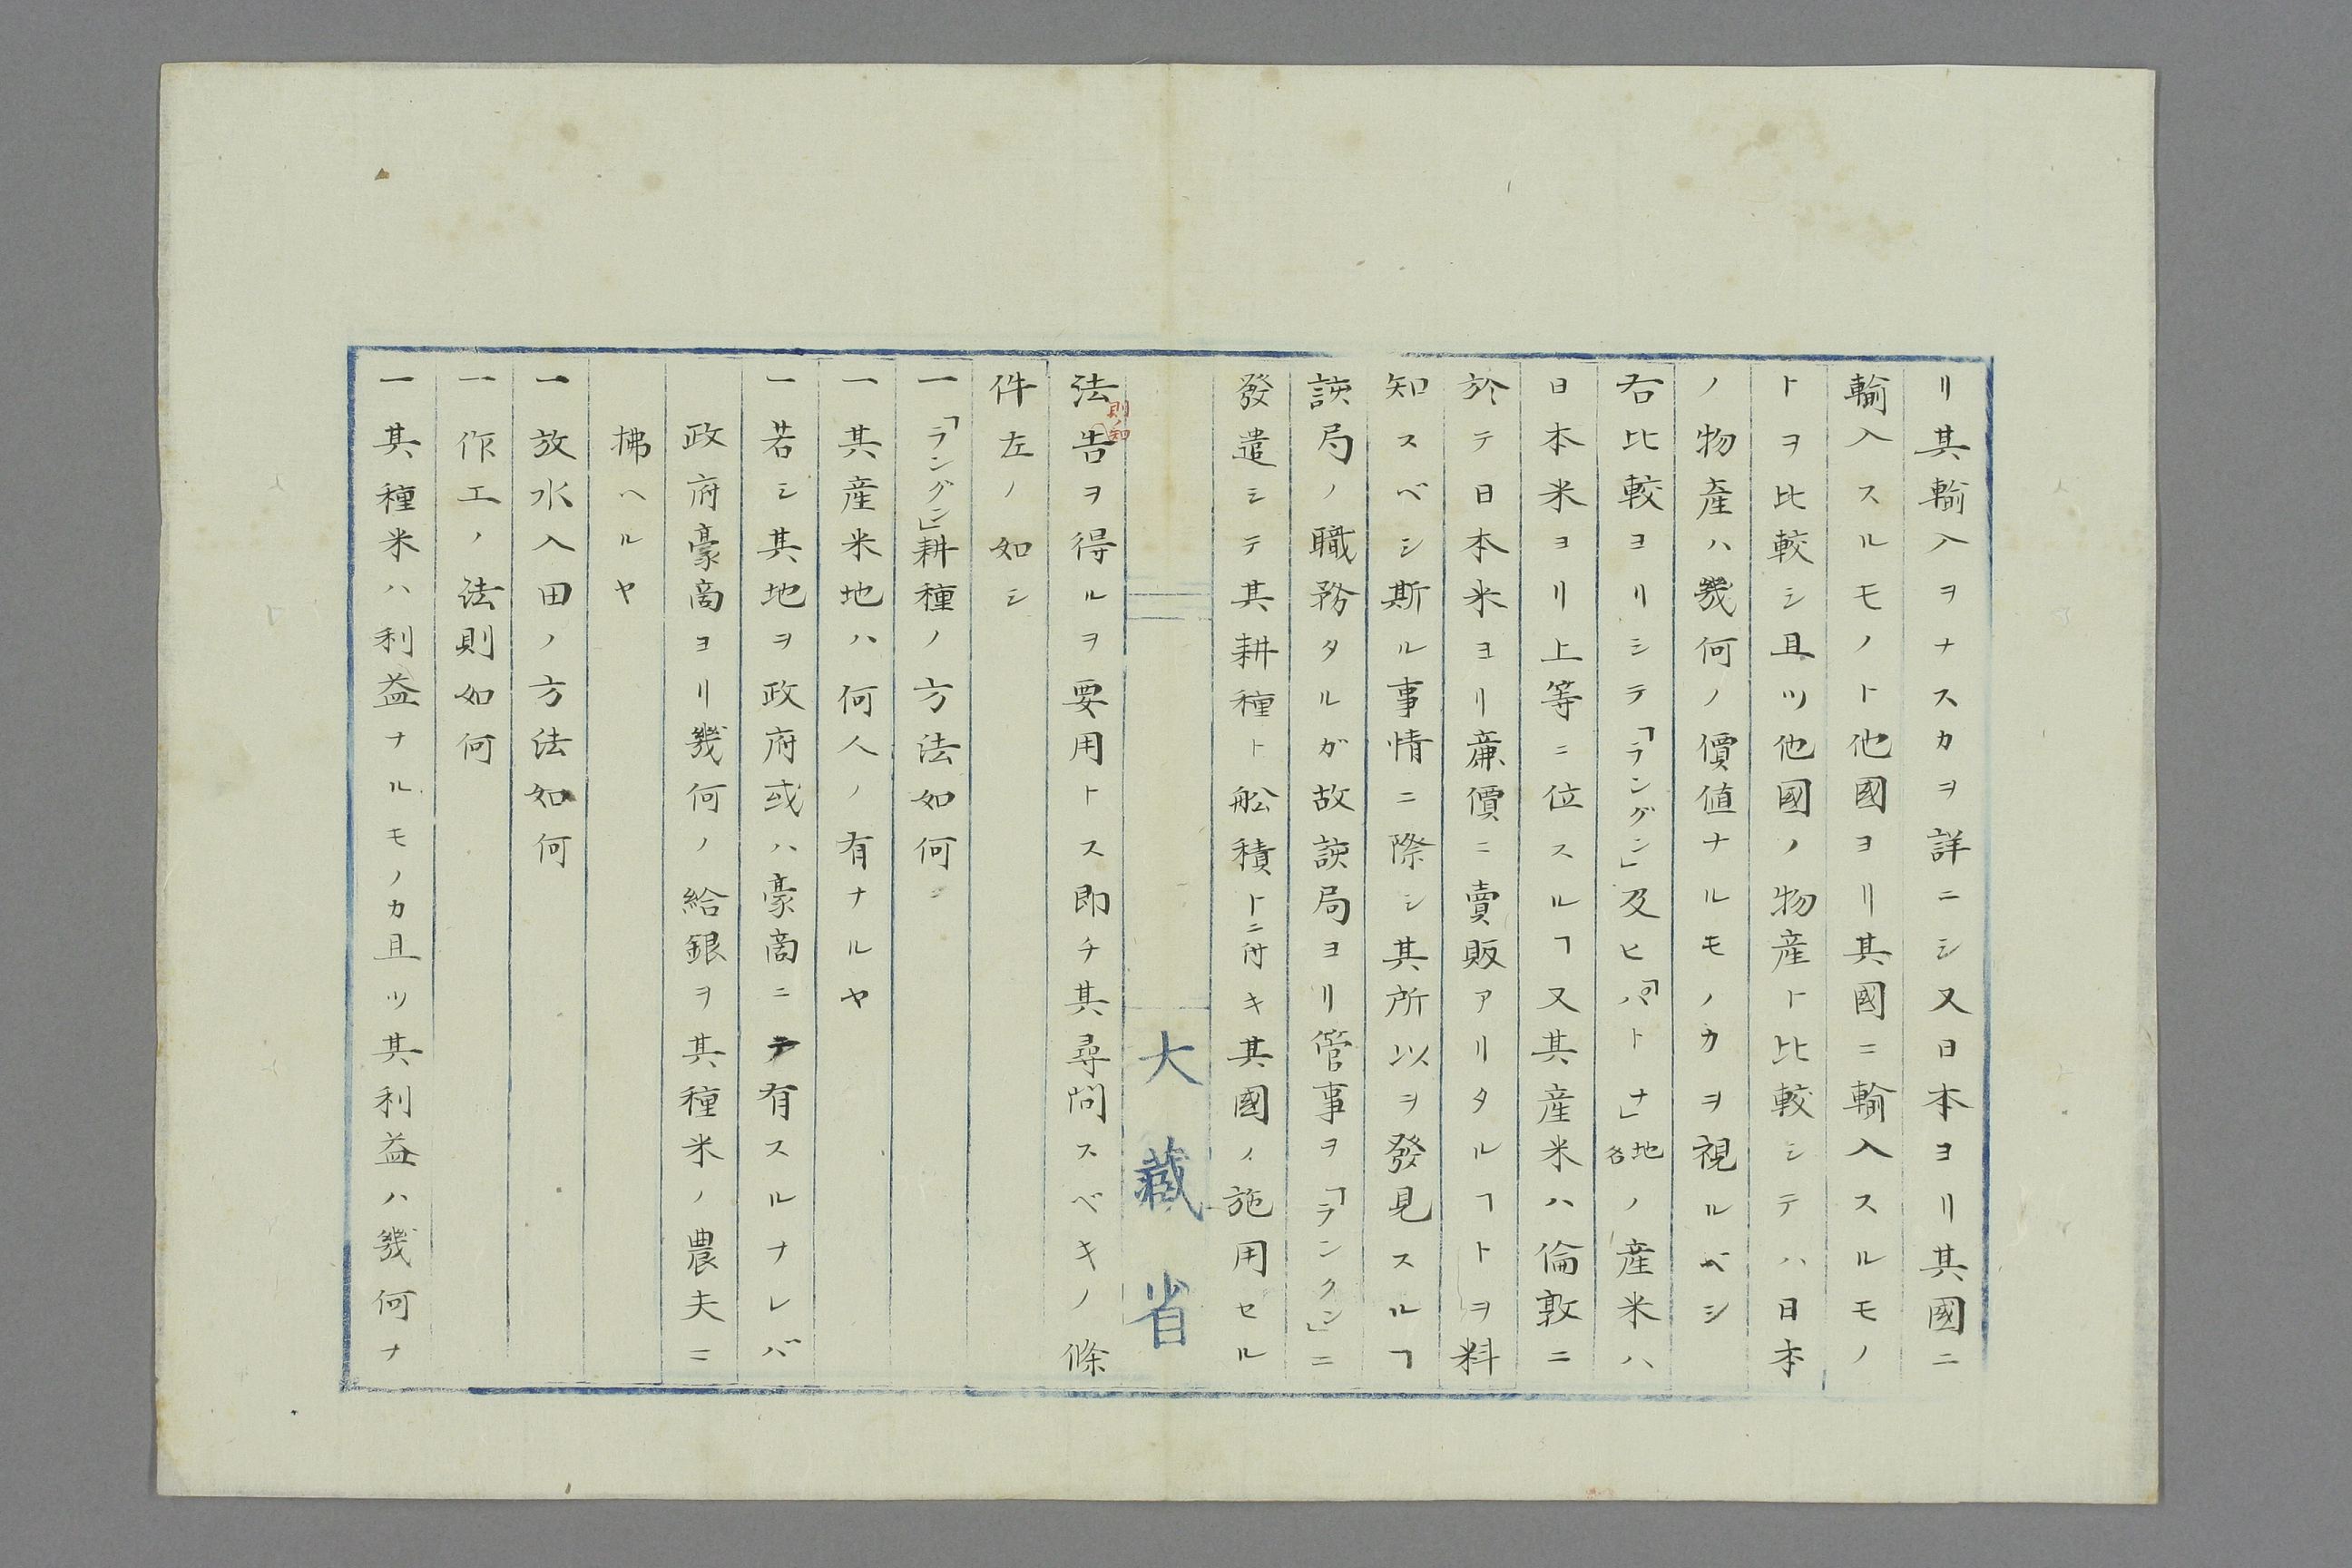 リ其輸入ヲナスカヲ詳ニシ又日本ヨリ其國ニ
輸入スルモノト他國ヨリ其國ニ輸入スルモノ
トヲ比較シ且ツ他國ノ物産ト比較シテハ日本
ノ物産ハ幾何ノ價値ナルモノカヲ視ルベシ
右比較ヨリシテ「ラングン」及ヒ「パトナ」地名ノ産米ハ
日本米ヨリ上等ニ位スルヿ又其産米ハ倫敦ニ
於テ日本米ヨリ廉價ニ賣販アリタルヿトヲ料
知スベシ斯ル事情ニ際シ其所以ヲ發見スルヿ
該局ノ職務タルガ故該局ヨリ管事ヲ「ランクン」ニ
發遣シテ其耕種ト舩積トニ付キ其國ノ施用セル
大藏省
法告ヲ得ルヲ要用トス即チ其尋問スベキノ條
則ノ知
件左ノ如シ
一「ラングン」耕種ノ方法如何
一其産米地ハ何人ノ有ナルヤ
一若シ其地ヲ政府或ハ豪商ニテ有スルナレバ
政府豪商ヨリ幾何ノ給銀ヲ其種米ノ農夫ニ
拂ヘルヤ
一放水入田ノ方法如何
一作工ノ法則如何
一其種米ハ利益ナルモノカ且ツ其利益ハ幾何ナ